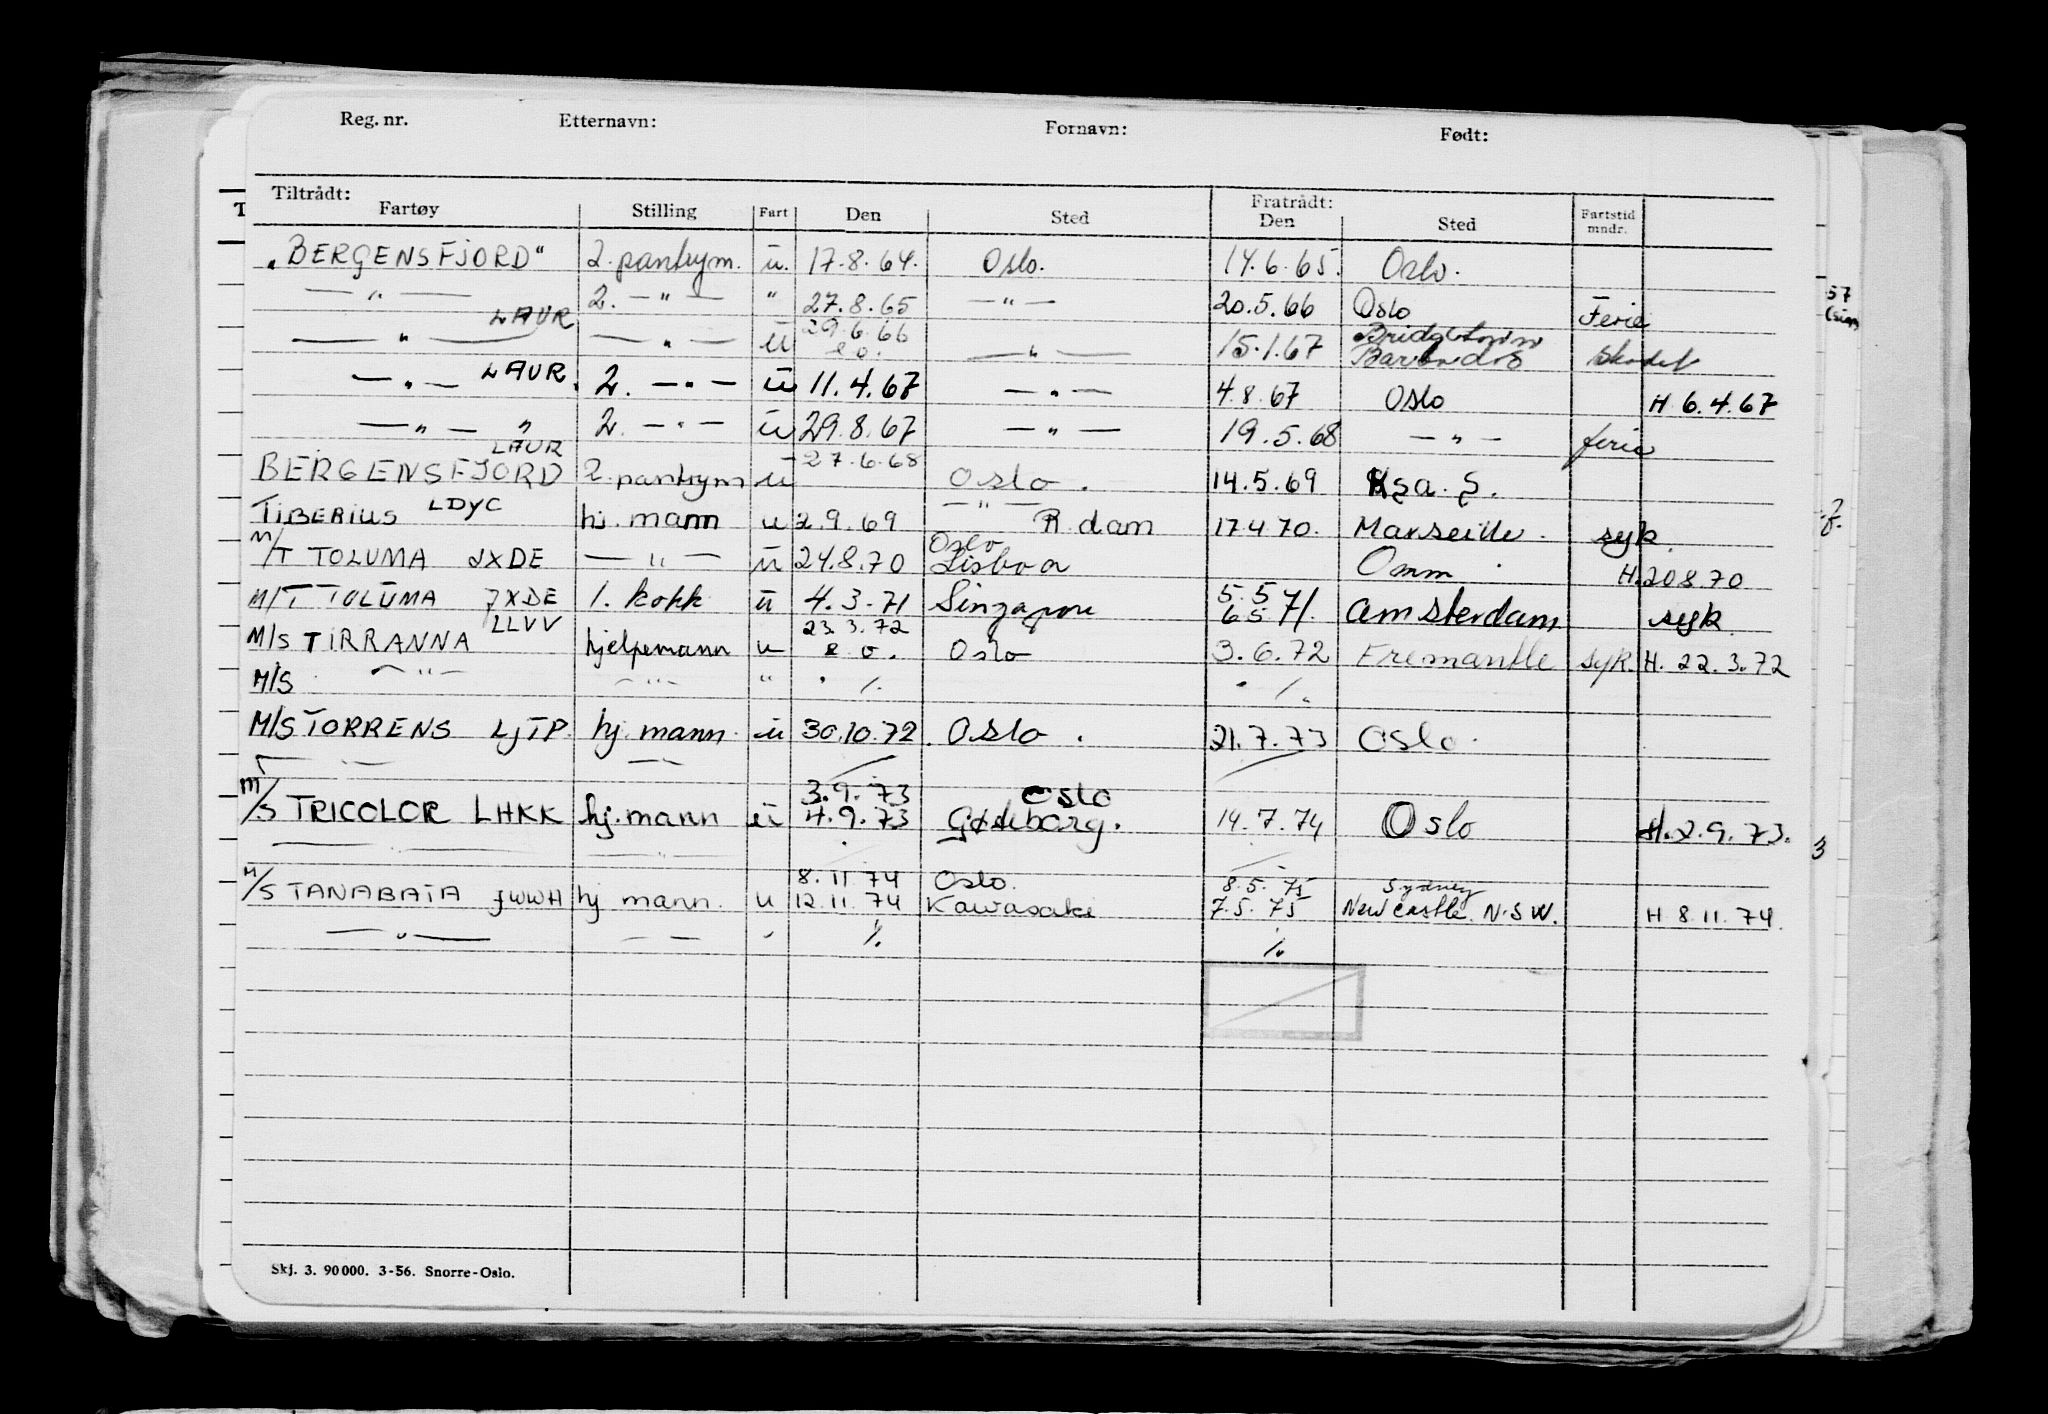 Reg. nr. Etternavn: Fornavn: Født:
Tiltrådt: Fratrådt:
Fartøy Stilling Fart Den Sted Den Sted Fartstid mndr.
„BERGENSFJORD“ 2. pantrym. u. 17.8.64. Oslo. 14.6.65. Oslo.
— „ — 2. — „ — " 27.8.65 — „ — 20.5.66 Oslo Ferie
LAUR 29.6.66 Bridgetown
— „ — — „ — u — „ — 15.1.67 Barbados skadet
— „ — LAUR. 2. — „ — u 11.4.67 — „ — 4.8.67 Oslo H. 6.4.67
— „ — „ 2. — „ — u 29.8.67 — „ — 19.5.68 — „ — ferie
LAUR 27.6.68
BERGENSFJORD 2. pantrym u Oslo. 14.5.69
— „ —
TIBERIUS LDYC hj. mann u 2.9.69 R.dam 17.4.70. Marseille. syk.
Oslo
M/T TOLUMA JXDE — „ — u 24.8.70 Lisboa Omm. H. 20.8.70
5.5.71.
M/T TOLUMA JXDE 1. kokk u 4.3.71 Singapore 6.5.71. Amsterdam syk.
LLVV 23.3.72
M/S TIRRANNA hjelpemann u e.o. Oslo 3.6.72 Fremantle syk. H. 22.3.72
M/S — „ — — „ — " ./. ./.
M/S TORRENS LJTP. hj. mann. u 30.10.72. Oslo. 21.7.73 Oslo.
3.9.73 Oslo
M/S TRICOLOR LHKK hj. mann u 4.9.73 Gøteborg. 14.7.74 Oslo H. 2.9.73.
8.11.74 Oslo. 8.5.75 Sydney
M/S TANABATA JWWH hj mann. u 12.11.74 Kawasaki 7.5.75 Newcastle. N.S.W. H 8.11.74.
— „ — — — " ./. ./.
57
3
Skj. 3. 90000. 3-56. Snorre-Oslo.